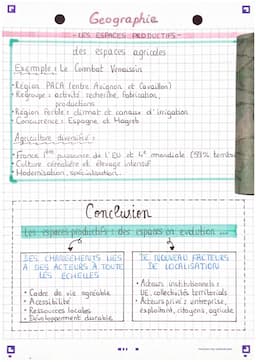 Geographie
- LES ESPACES PRODUCTIFS -
des espaces agricoles
Exemple : Le Comtat Venaissin
• Région PACA (entre Avignon et Cavaillon)
• Regroupe : activité recherche, fabrication,
productions
• Région fertile : climat et canaux d'irrigation
• Concurrence : Espagne et Magreb
Agriculture diversifié :
• France 1ère puissance de l'EU et 4e mondiale (53%
• Culture céréalière et élevage intensif
• Modernisation, spécialisation
Conclusion
Les espaces productifs : des espaces en évolution ...
DES CHANGEMENTS LIÉS
À DES ACTEURS À TOUTE
LES ÉCHELLES
• Cadre de vie agréable
• Accessibilité
• Ressources locales
• Développement durable
DE NOUVEAU FACTEURS
DE LOCALISATION
• Acteurs institutionnels :
UE, collectivités territorials
• Acteurs privé : entreprise,
exploitant, citoyens, agricole